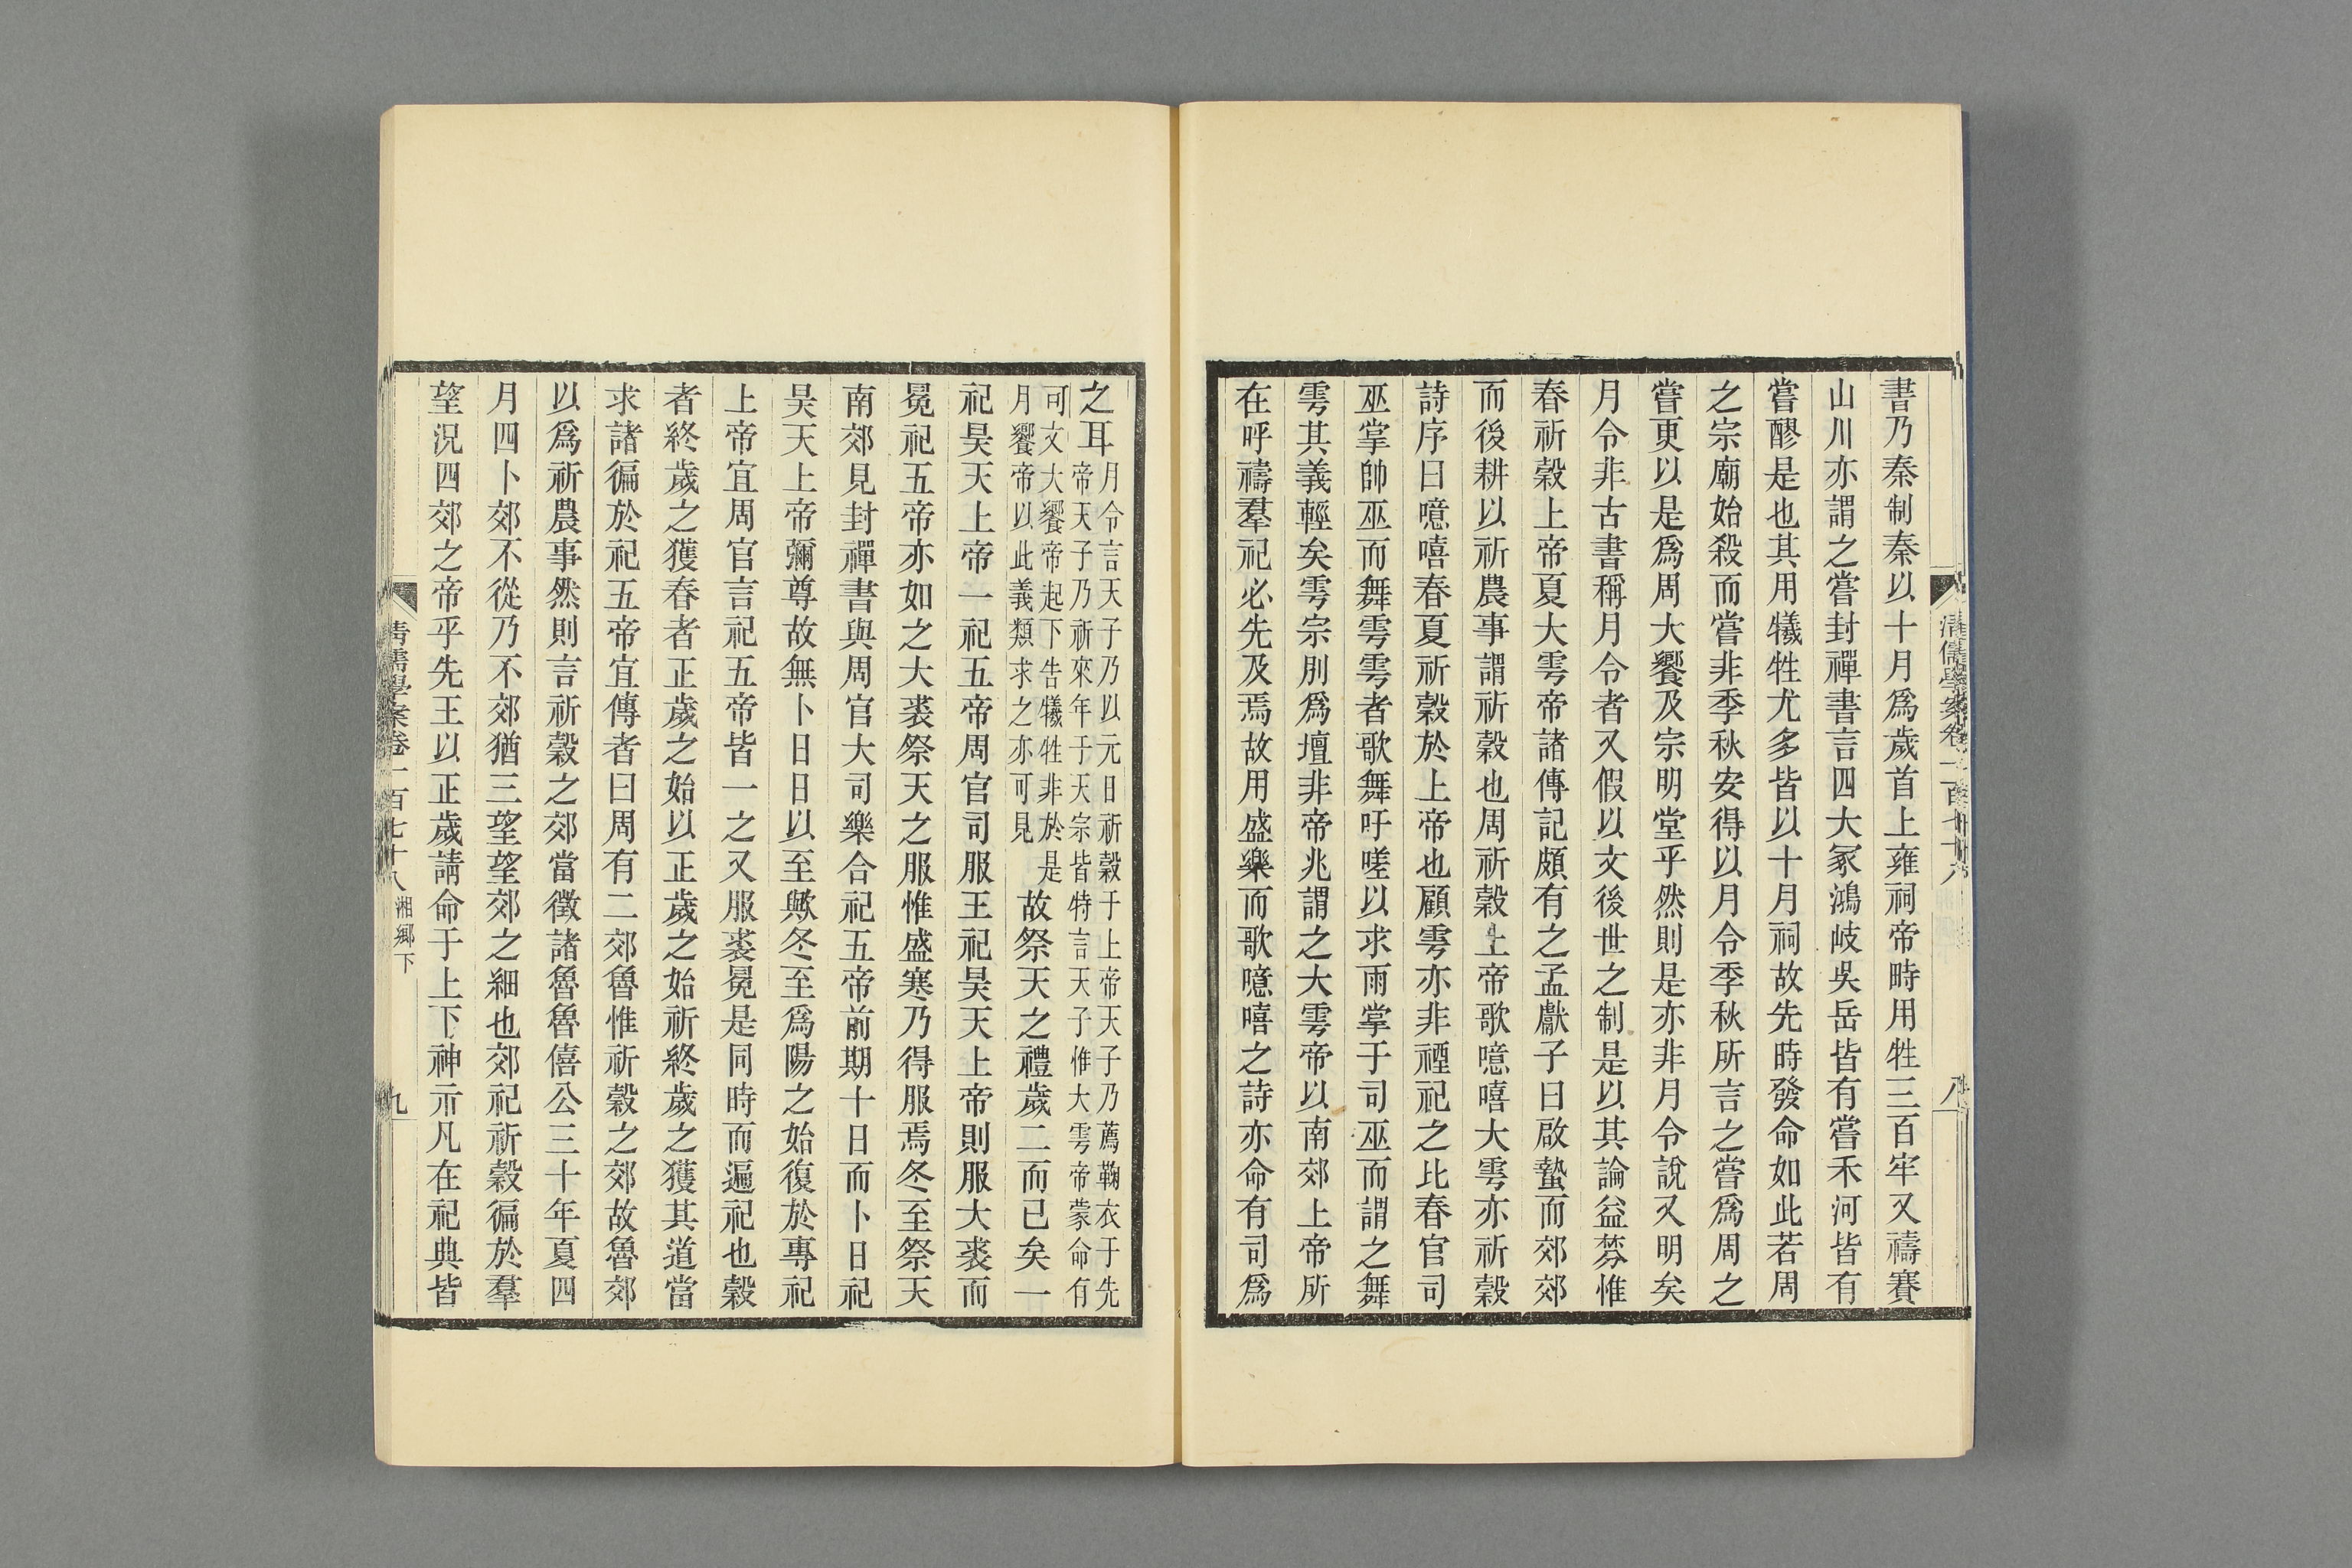 清儒學案卷一百七十八
八
書乃秦制秦以十月爲歲首上雍祠帝畤用牲三百牢又禱賽
山川亦謂之嘗封禪書言四大冢鴻岐吳岳皆有嘗禾河皆有
嘗醪是也其用犧牲尤多皆以十月祠故先時發命如此若周
之宗廟始殺而嘗非季秋安得以月令季秋所言之嘗爲周之
嘗更以是爲周大饗及宗明堂乎然則是亦非月令說又明矣
月令非古書稱月令者又假以文後世之制是以其論益棼惟
春祈穀上帝夏大雩帝諸傳記頗有之孟獻子曰啟蟄而郊郊
而後耕以祈農事謂祈穀也周祈穀上帝歌噫嘻大雩亦祈穀
詩序曰噫嘻春夏祈穀於上帝也顧雩亦非禋祀之比春官司
巫掌帥巫而舞雩雩者歌舞吁嗟以求雨掌于司巫而謂之舞
雩其義輕矣雩宗刖爲壇非帝兆謂之大雩帝以南郊上帝所
在呼禱羣祀必先及焉故用盛樂而歌噫嘻之詩亦命有司爲
之耳
月令言天子乃以元日祈穀于上帝天子乃薦鞠衣于先
帝天子乃祈來年于天宗皆特言天子惟大雩帝蒙命有
可文大饗帝起下告犧牲非於是
月饗帝以此義類求之亦可見
故祭天之禮歲二而已矣一
祀昊天上帝一祀五帝周官司服王祀昊天上帝則服大裘而
冕祀五帝亦如之大裘祭天之服惟盛寒乃得服焉冬至祭天
南郊見封禪書與周官大司樂合祀五帝前期十日而卜日祀
昊天上帝彌尊故無卜日日以至歟冬至爲陽之始復於專祀
上帝宜周官言祀五帝皆一之又服裘冕是同時而遍祀也穀
者終歲之獲春者正歲之始以正歲之始祈終歲之獲其道當
求諸徧於祀五帝宜傳者曰周有二郊魯惟祈穀之郊故魯郊
以爲祈農事然則言祈穀之郊當徵諸魯魯僖公三十年夏四
月四卜郊不從乃不郊猶三望望郊之細也郊祀祈穀徧於羣
望況四郊之帝乎先王以正歲請命于上下神示凡在祀典皆
清儒學案卷一百七十八 湘鄉下
九